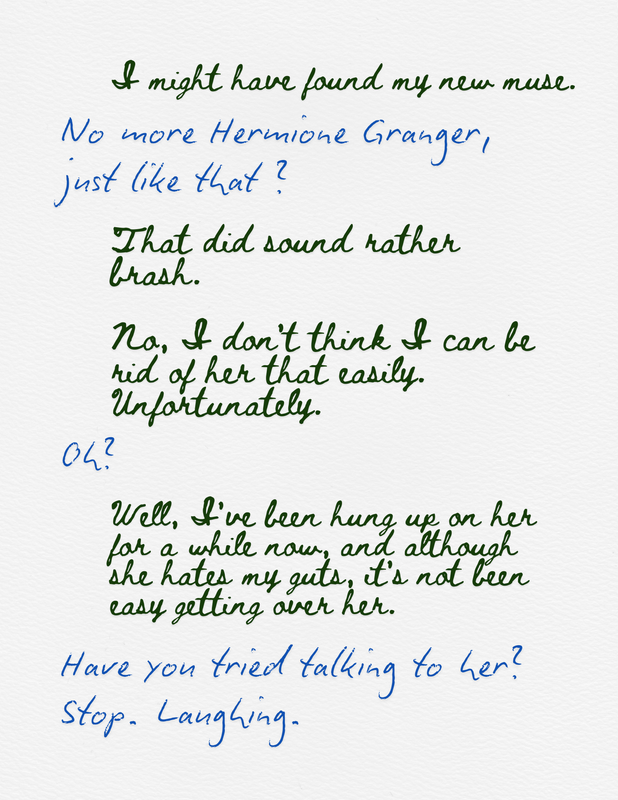 I might have found my new muse.
No more Hermione Granger,
just like that?
That did sound rather
brash.
No, I don't think I can be
rid of her that easily.
Unfortunately.
Oh?
Well, I've been hung up on her
for a while now, and although
she hates my guts, it's not been
easy getting over her.
Have you tried talking to her?
Stop. Laughing.